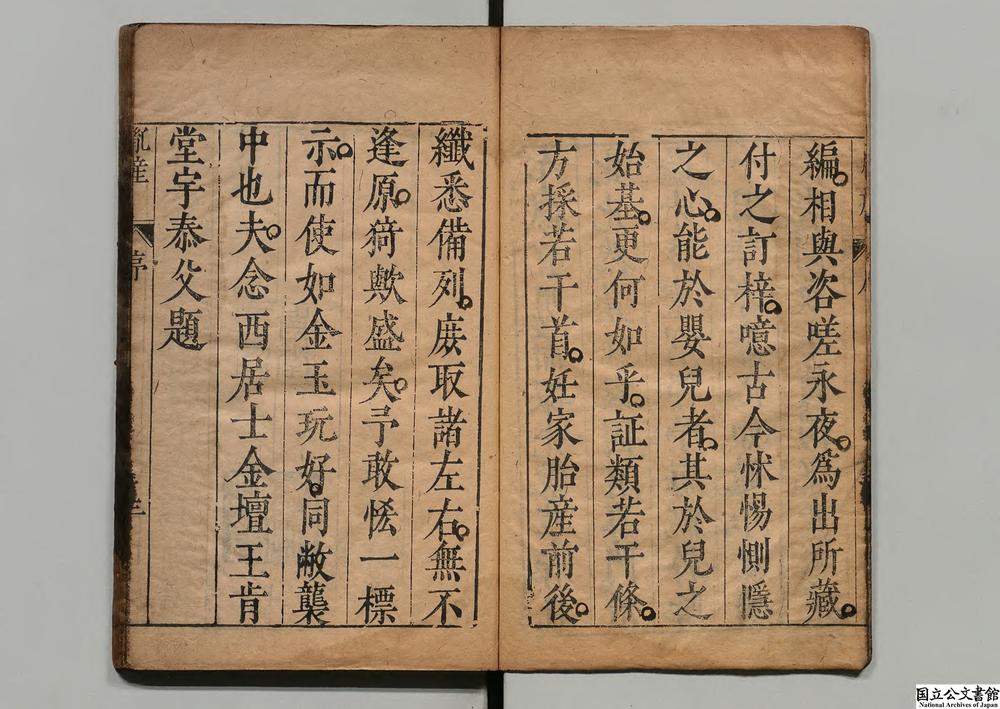 編相與咨嗟永夜為出所藏
付之訂梓噫古今怵惕惻隱
之心能於嬰兒者其於兒之
始基更何如乎証類若干條
方採若干首妊家胎産前後
纖悉備列庻取諸左右無不
逢原猗歟盛矣予敢恡一標
示而使如金玉玩好同敝襲
中也夫念西居士金壇王肯
堂宇泰父題
胤産
序
国立公文書館
National Archives of Japan